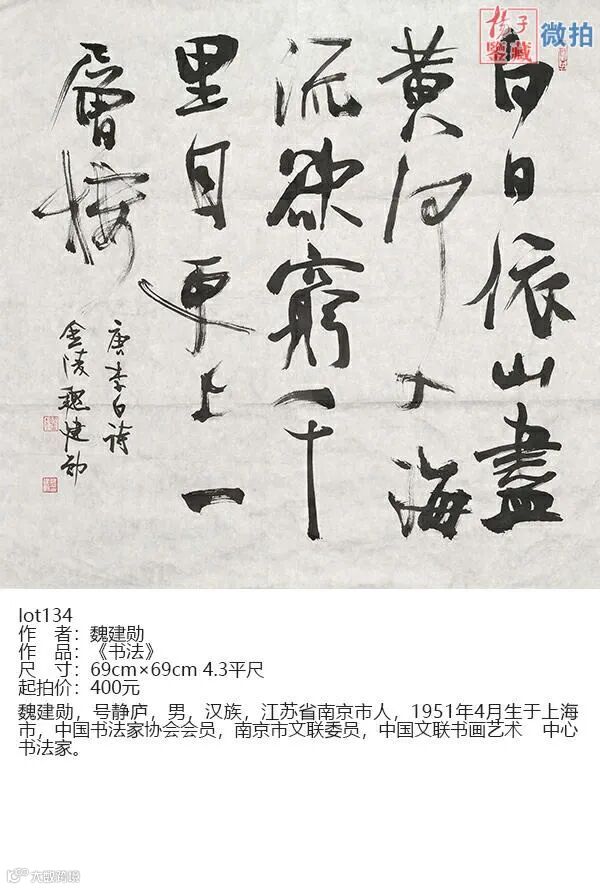 揚子
鑒藏
微拍
白日依山盡
黃河入海
流欲窮千
里目更上一
層樓
唐李白詩
金陵魏建勋
lot134
作 者：魏建勋
作 品：《书法》
尺 寸：69cm×69cm 4.3平尺
起拍价：400元
魏建勋，号静庐，男，汉族，江苏省南京市人，1951年4月生于上海
市，中国书法家协会会员，南京市文联委员，中国文联书画艺术 中心
书法家。